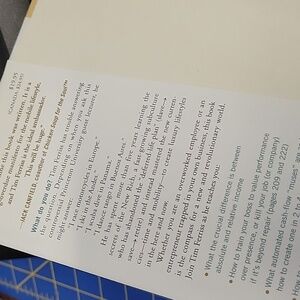 $19.95
(CANADA: $24.95)
this book was written. It is a
manifesto for the mobile lifestyle,
and Tim Ferriss is the ideal ambassador.
This will be huge."
—JACK CANFIELD, cocreator of Chicken Soup for the Soul™
What do you do? Tim Ferriss has trouble answering
the question. Depending on when you ask this
controversial Princeton University guest lecturer, he
might answer:
"I race motorcycles in Europe."
"I ski in the Andes."
"I scuba dive in Panama."
"I dance tango in Buenos Aires."
He has spent more than five years learning the
secrets of the New Rich, a fast-growing subculture
who has abandoned the "deferred-life plan" (slave→
save→retire) and instead mastered the new currencies—time
and mobility—to create luxury lifestyles
in the here and now.
Whether you are an overworked employee or an
entrepreneur trapped in your own business, this book
is the compass for a new and revolutionary world.
Join Tim Ferriss as he teaches you:
• What the crucial difference is between
absolute and relative income
• How to train your boss to value performance
over presence, or kill your job (or company)
if it's beyond repair (pages 209 and 222)
• What automated cash-flow "muses" are
how to create one in 2 to 4